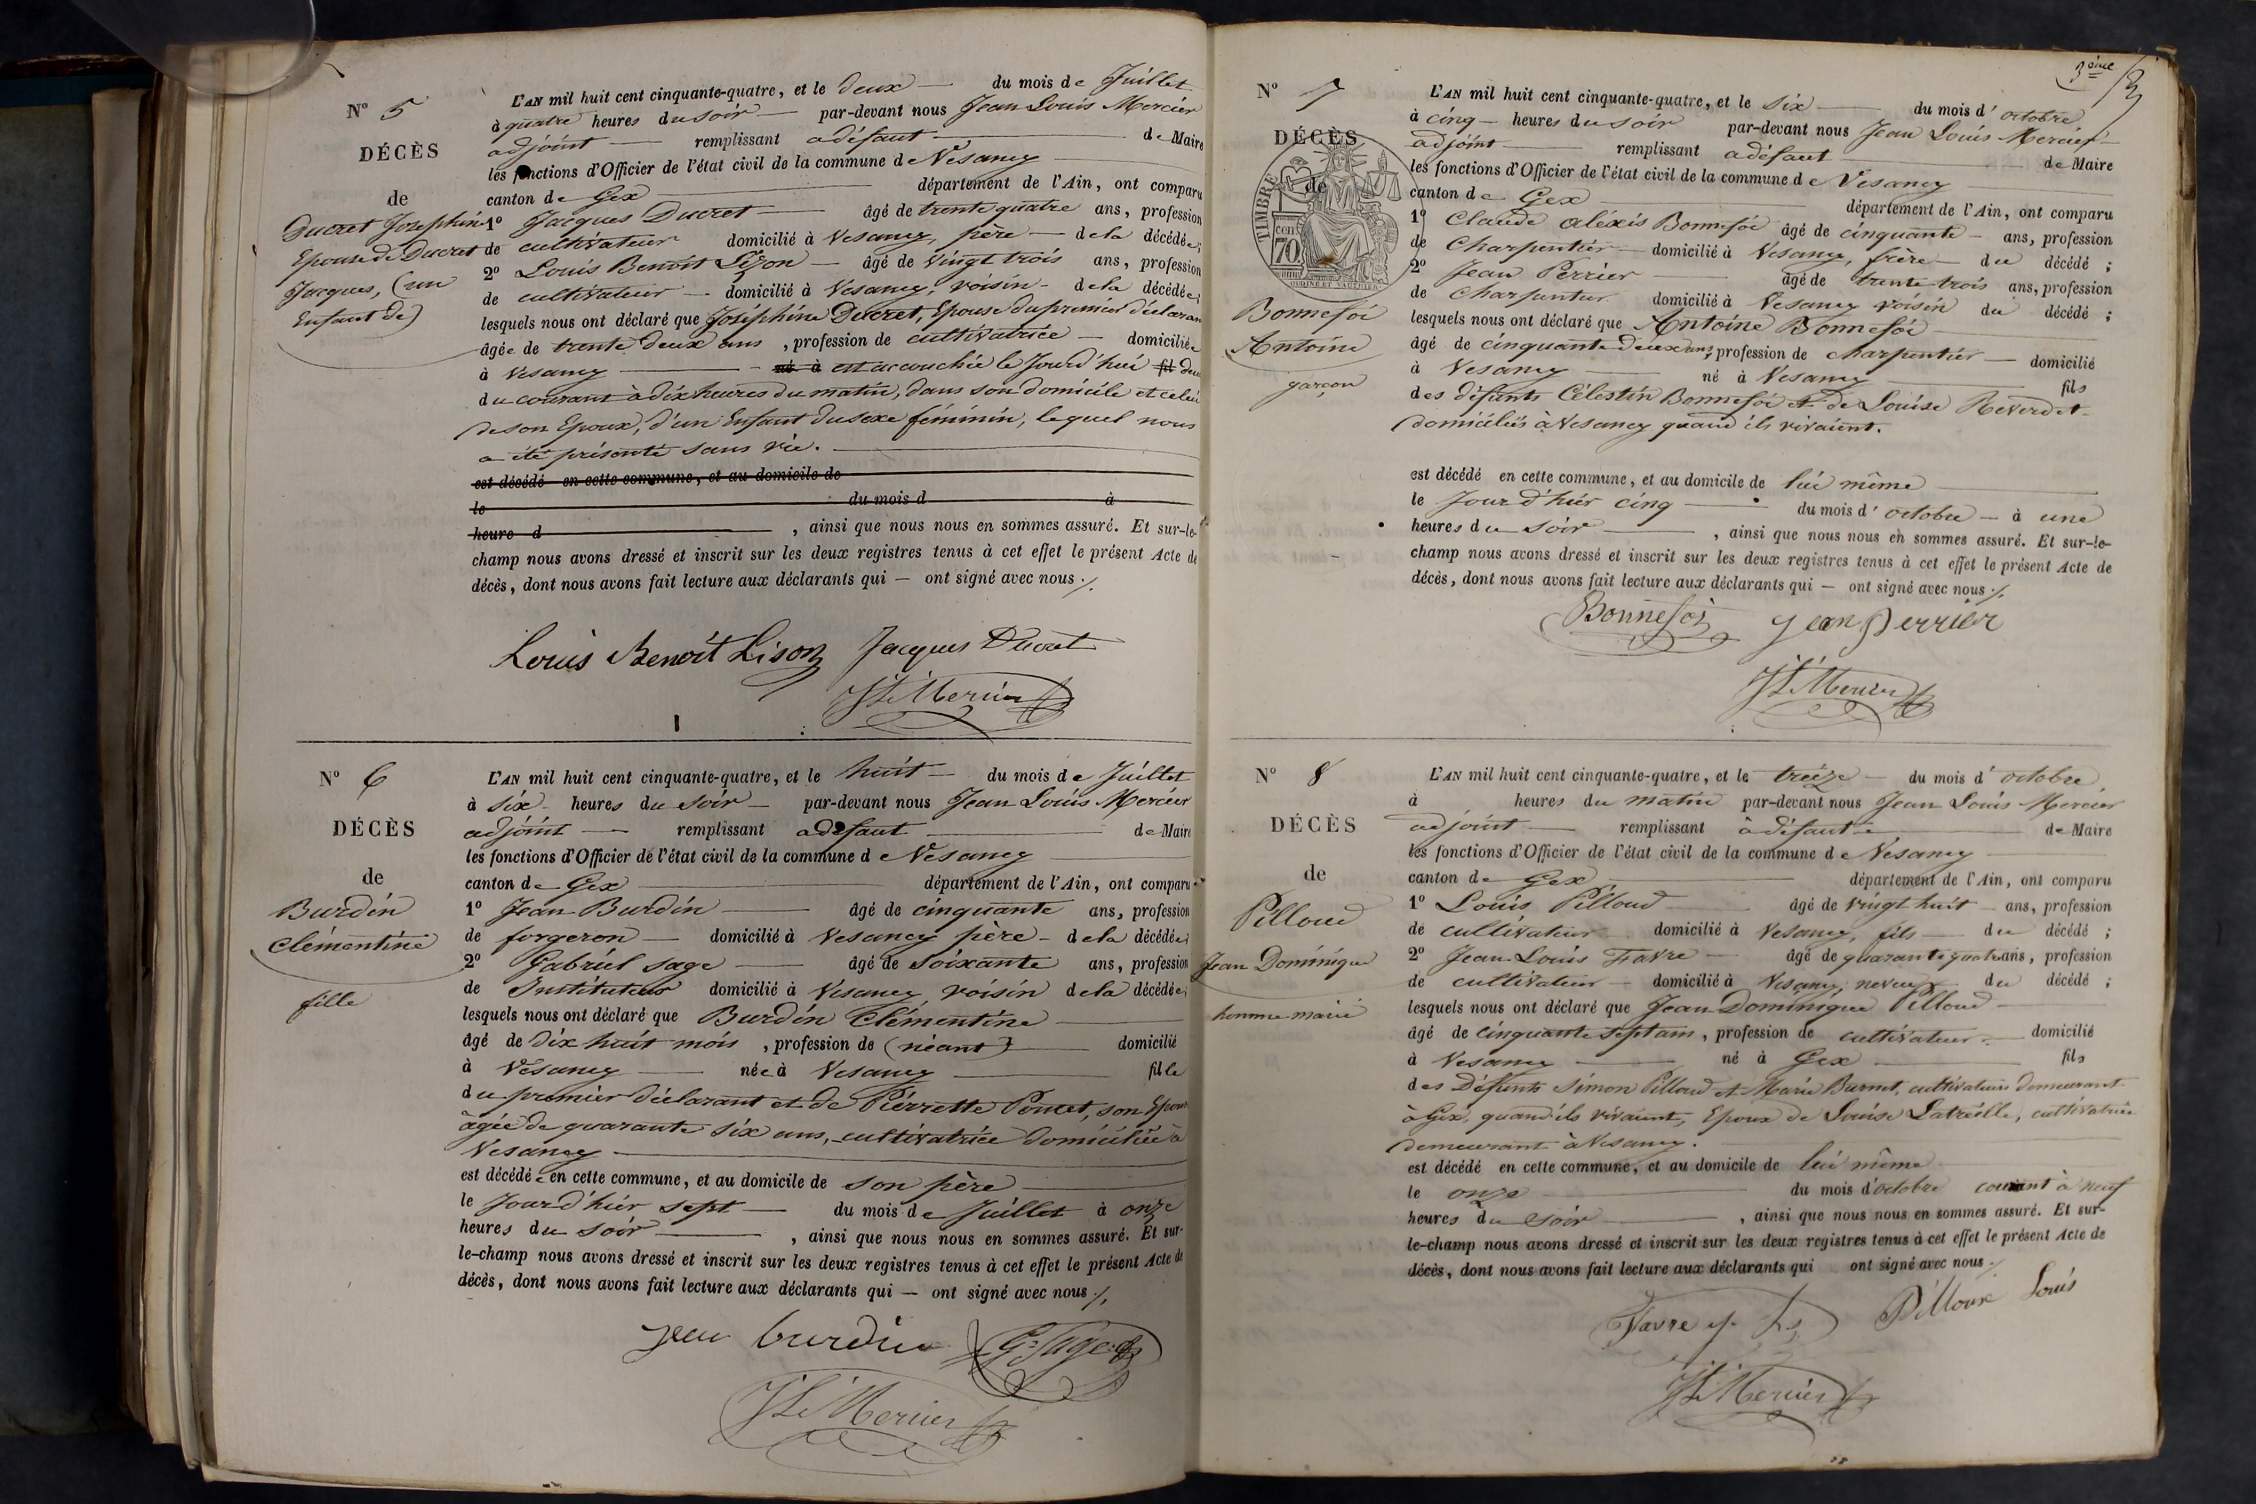 N° 5
DÉCÈS
de
Ducret Joséphine
Epouse de Ducret
Jacques, (un
Enfant de)
L'AN mil huit cent cinquante-quatre, et le deux du mois de Juillet
à quatre heures du soir par-devant nous Jean Louis Mercier
adjoint remplissant a défaut de Maire
les fonctions d'Officier de l'état civil de la commune de Vesancy
canton de Gex département de l'Ain, ont comparu
1° Jacques Ducret âgé de trente quatre ans, profession
de cultivateur domicilié à Vesancy, père de la décédée;
2° Louis Benoit Lizon âgé de vingt trois ans, profession
de cultivateur domicilié à Vesancy, voisin de la décédée;
lesquels nous ont déclaré que Joséphine Ducret, Epouse du premier déclaran
âgée de trente deux ans, profession de cultivatrice domiciliée
à Vesancy né à est accouchée le Jourd'hui fil deux
du courant à dix heures du matin, dans son domicile et celui
de son Epoux, d'un Enfant du sexe féminin, lequel nous
a été présenté sans vie.
est décédé en cette commune, et au domicile de
le du mois d à
heure d , ainsi que nous nous en sommes assuré. Et sur-le-
champ nous avons dressé et inscrit sur les deux registres tenus à cet effet le présent Acte de
décès, dont nous avons fait lecture aux déclarants qui — ont signé avec nous ./.
Louis Benoit Lison Jacques Ducret
JL Mercier
N° 6
DÉCÈS
de
Burdin
Clémentine
fille
L'AN mil huit cent cinquante-quatre, et le huit du mois de Juillet
à six heures du soir par-devant nous Jean Louis Mercier
adjoint remplissant a défaut de Maire
les fonctions d'Officier de l'état civil de la commune de Vesancy
canton de Gex département de l'Ain, ont comparu
1° Jean Burdin âgé de cinquante ans, profession
de forgeron domicilié à Vesancy père de la décédée;
2° Gabriel Sage âgé de Soixante ans, profession
de Instituteur domicilié à Vesancy, voisin de la décédée;
lesquels nous ont déclaré que Burdin Clémentine
âgé de dix huit mois, profession de (néant) domicilié
à Vesancy née à Vesancy fille
du premier déclarant et de Pierrette Poncet, son Epouse
âgée de quarante six ans, cultivatrice domiciliée à
Vesancy
est décédée en cette commune, et au domicile de son père
le Jour d'hier sept du mois de Juillet à onze
heures du soir , ainsi que nous nous en sommes assuré. Et sur-
le-champ nous avons dressé et inscrit sur les deux registres tenus à cet effet le présent Acte de
décès, dont nous avons fait lecture aux déclarants qui — ont signé avec nous ./.
jean burdin G. Sage
JL Mercier
3ème
N° 7
DÉCÈS
de
TIMBRE
70
Bonnefoi
Antoine
garçon
L'AN mil huit cent cinquante-quatre, et le six du mois d'octobre
à cinq heures du soir par-devant nous Jean Louis Mercier
adjoint remplissant a défaut de Maire
les fonctions d'Officier de l'état civil de la commune de Vesancy
canton de Gex département de l'Ain, ont comparu
1° Claude Aléxis Bonnefoi âgé de cinquante ans, profession
de Charpentier domicilié à Vesancy, frère du décédé;
2° Jean Perrier âgé de trente trois ans, profession
de charpentier domicilié à Vesancy voisin du décédé;
lesquels nous ont déclaré que Antoine Bonnefoi
âgé de cinquante deux ans, profession de charpentier domicilié
à Vesancy né à Vesancy fils
des défunts Célestin Bonnefoi et de Louise Reverdet
domiciliés à Vesancy quand ils vivaient.
est décédé en cette commune, et au domicile de lui même
le Jour d'hier cinq du mois d'octobre à une
heures du soir , ainsi que nous nous en sommes assuré. Et sur-le-
champ nous avons dressé et inscrit sur les deux registres tenus à cet effet le présent Acte de
décès, dont nous avons fait lecture aux déclarants qui — ont signé avec nous ./.
Bonnefoi jean perrier
JL Mercier
N° 8
DÉCÈS
de
Pilloud
Jean Dominique
homme marié
L'AN mil huit cent cinquante-quatre, et le treize du mois d'octobre
à heures du matin par-devant nous Jean Louis Mercier
adjoint remplissant à défaut de Maire
les fonctions d'Officier de l'état civil de la commune de Vesancy
canton de Gex département de l'Ain, ont comparu
1° Louis Pilloud âgé de vingt huit ans, profession
de cultivateur domicilié à Vesancy, fils du décédé;
2° Jean Louis Favre âgé de quarante quatre ans, profession
de cultivateur domicilié à Vesancy, neveux du décédé;
lesquels nous ont déclaré que Jean Dominique Pilloud
âgé de cinquante sept ans, profession de cultivateur domicilié
à Vesancy né à Gex fils
des Défunts Simon Pilloud et Marie Burnet, cultivateurs demeurant
à Gex, quand ils vivaient, Epoux de Louise Latreille, cultivatrice
demeurant à Vesancy.
est décédé en cette commune, et au domicile de lui même
le onze du mois d'octobre courant à neuf
heures du soir , ainsi que nous nous en sommes assuré. Et sur-
le-champ nous avons dressé et inscrit sur les deux registres tenus à cet effet le présent Acte de
décès, dont nous avons fait lecture aux déclarants qui ont signé avec nous ./.
Favre Pilloux Louis
JL Mercier